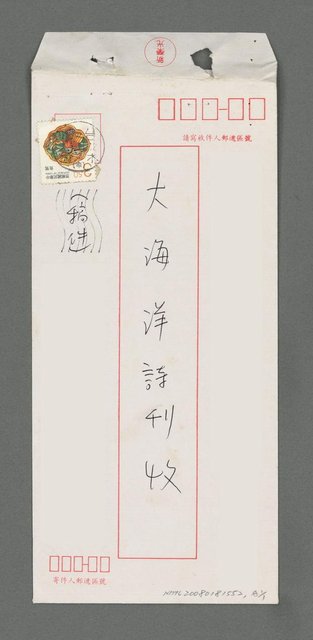 請寫收件人郵遞區號
大海洋詩刊收
稿件
寄件人郵遞區號
NMTL20080181552,